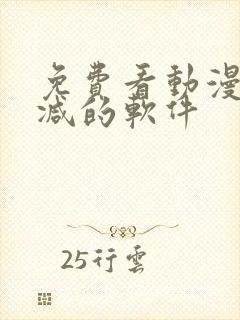 免費看動漫
減的軟件
25行雲